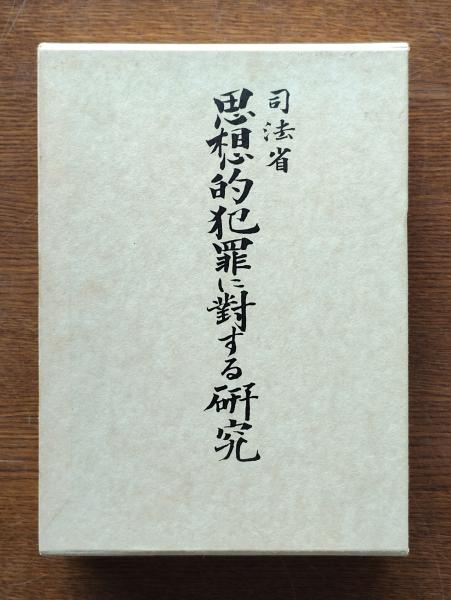 司法省
思想的犯罪に對する研究